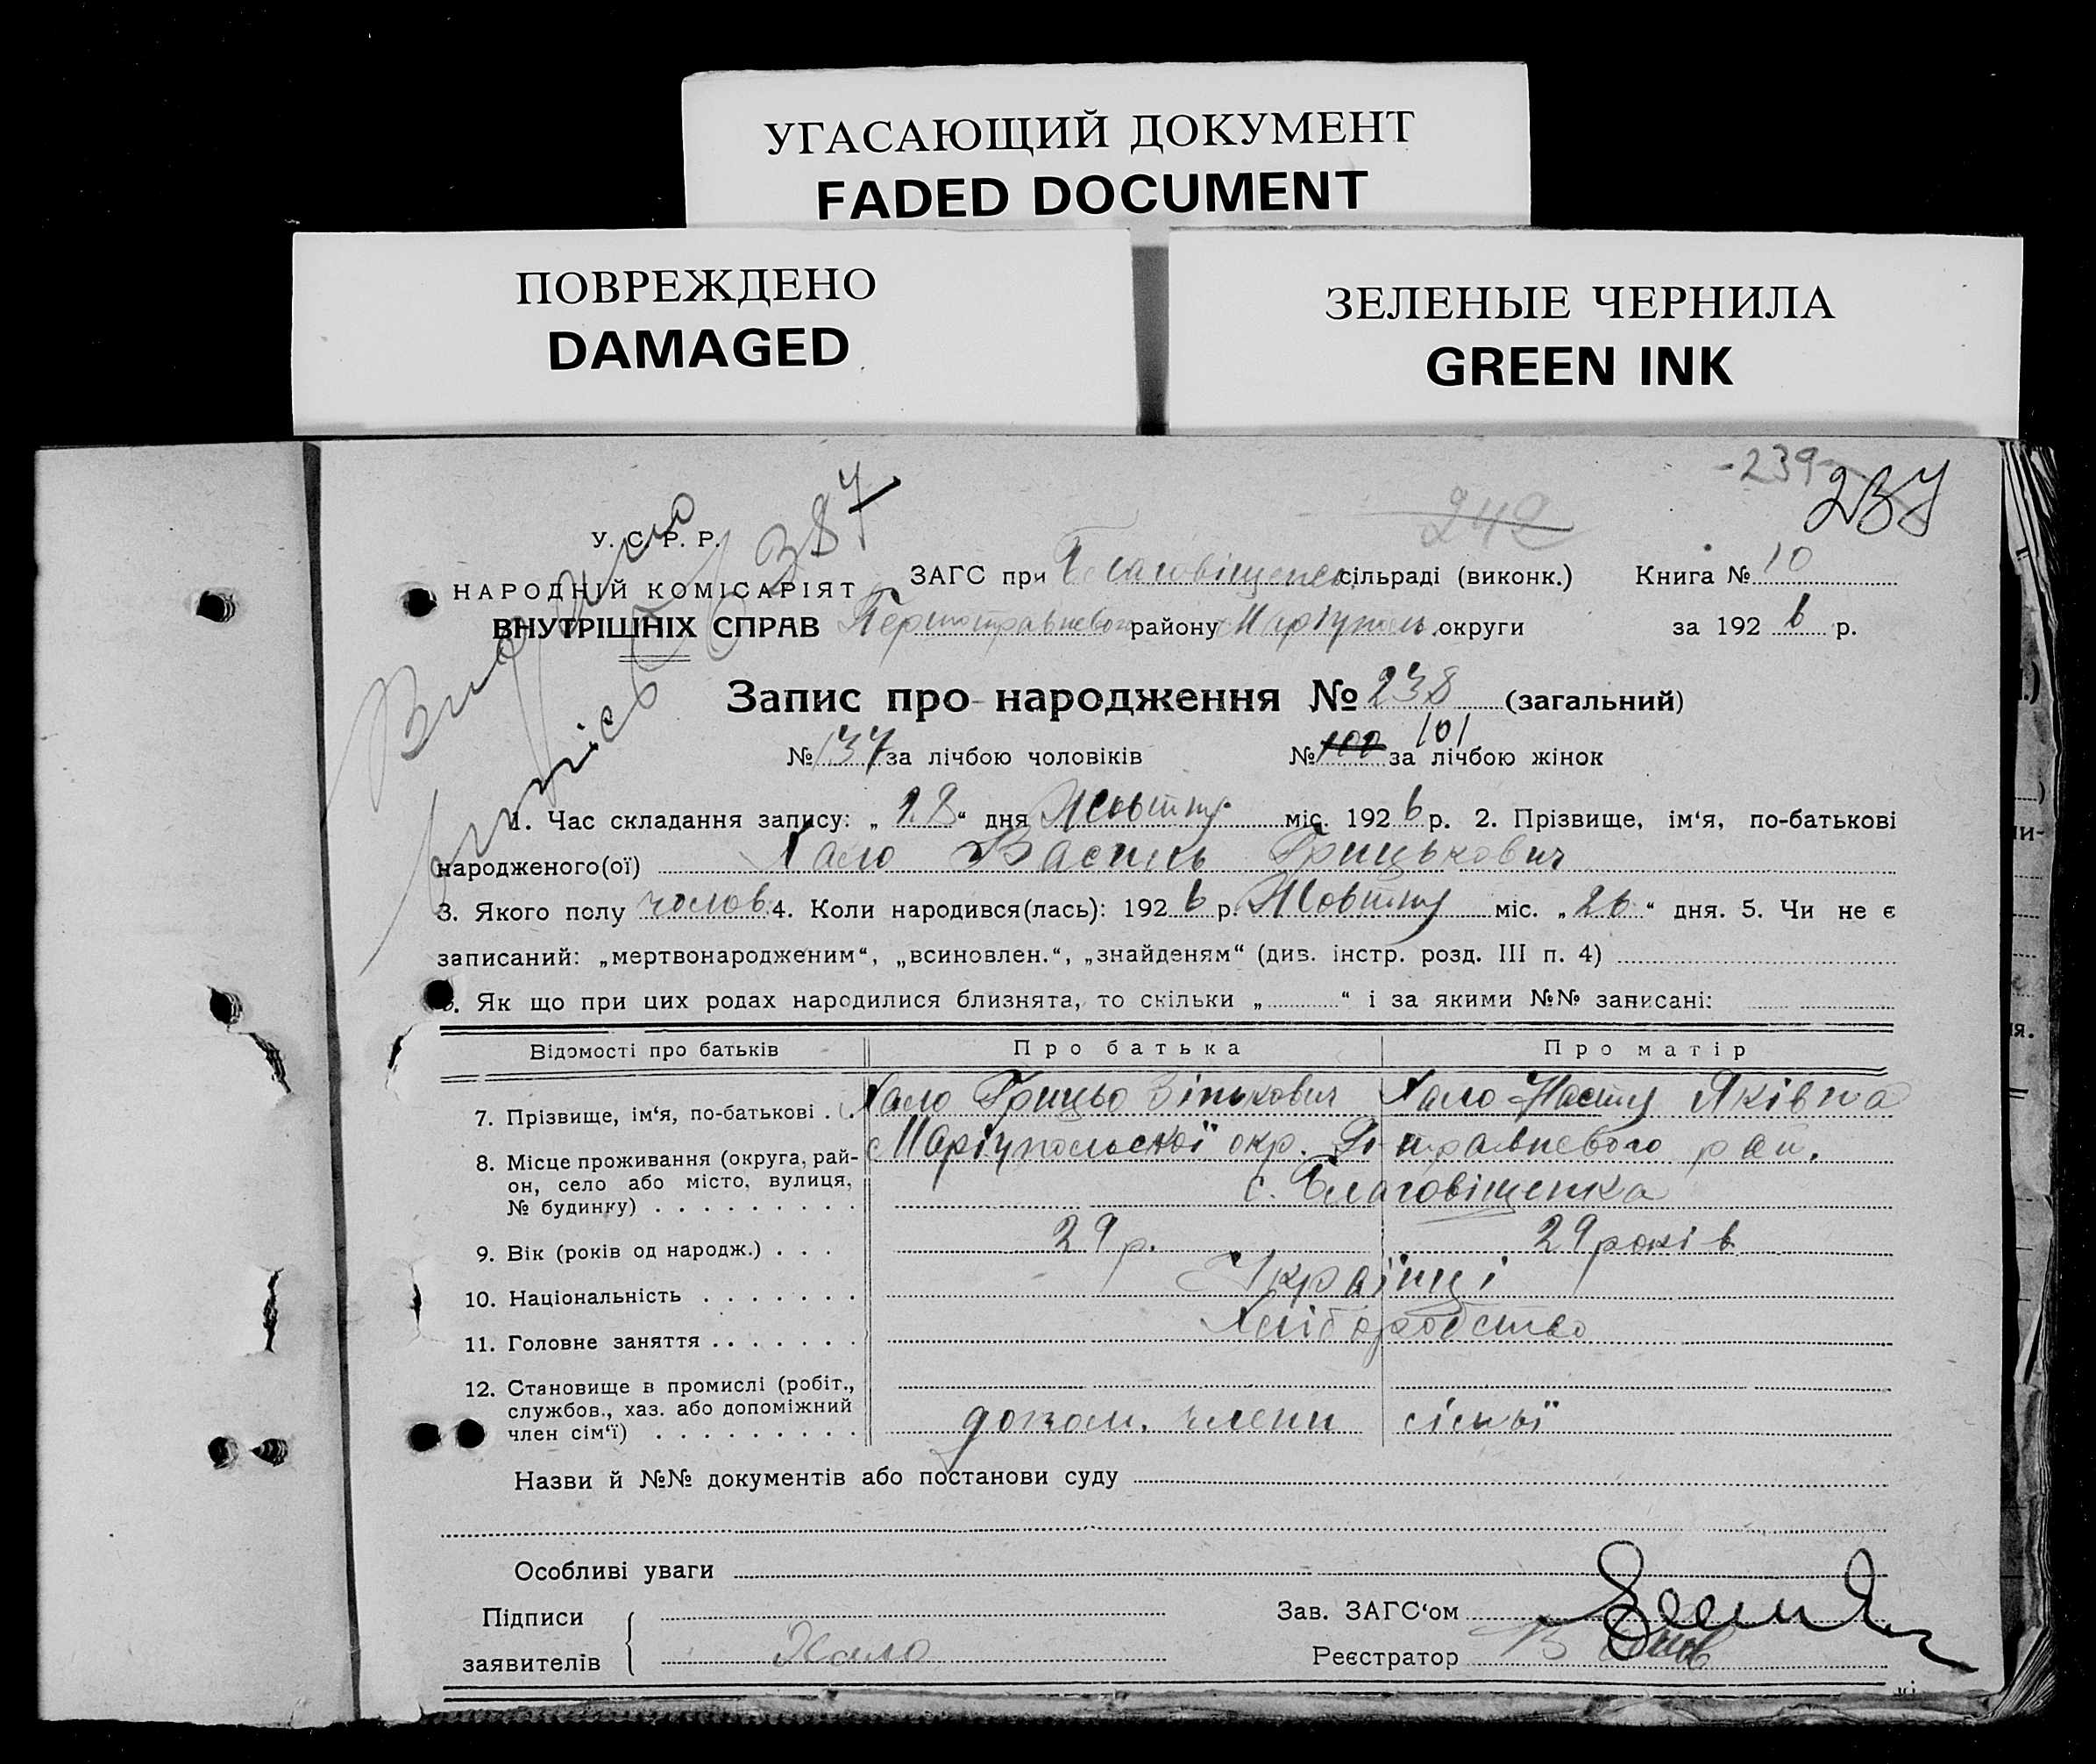 УГАСАЮЩИЙ ДОКУМЕНТ
FADED DOCUMENT
ПОВРЕЖДЕНО
DAMAGED
ЗЕЛЕНЫЕ ЧЕРНИЛА
GREEN INK
-239-
237
242
387
У. С. Р. Р.
НАРОДНІЙ КОМІСАРІЯТ
ВНУТРІШНІХ СПРАВ
ЗАГС при Благовіщенськ. сільраді (виконк.) Книга № 10
Першотравневого району Маріупель. округи за 1926 р.
Запис про народження № 238 (загальний)
№ 137 за лічбою чоловіків № 100 101 за лічбою жінок
1. Час складання запису: „28“ дня Жовтня міс. 1926 р. 2. Прізвище, ім‘я, по-батькові
народженого(ої) Хало Василь Грицькович
3. Якого полу чолов. 4. Коли народився(лась): 1926 р. Жовтня міс. „26“ дня. 5. Чи не є
записаний: „мертвонародженим“, „всиновлен.“, „знайденям“ (див. інстр. розд. III п. 4)
6. Як що при цих родах народилися близнята, то скільки „ “ і за якими №№ записані:
Відомості про батьків Про батька Про матір
7. Прізвище, ім‘я, по-батькові . . Хало Грицько Зінькович Хало Настя Яківна
8. Місце проживання (округа, рай-
он, село або місто, вулиця,
№ будинку)
Маріупольської окр. травневого рай.
с. Благовіщенка
9. Вік (років од народж.) . . . 29 р. 29 років
10. Національність Українці
11. Головне заняття Хліборобство
12. Становище в промислі (робіт.,
службов., хаз. або допоміжний
член сім‘ї)
допом. члени сімьї
Назви й №№ документів або постанови суду
Особливі уваги
Підписи
заявителів Хало
Зав. ЗАГС‘ом
Реєстратор